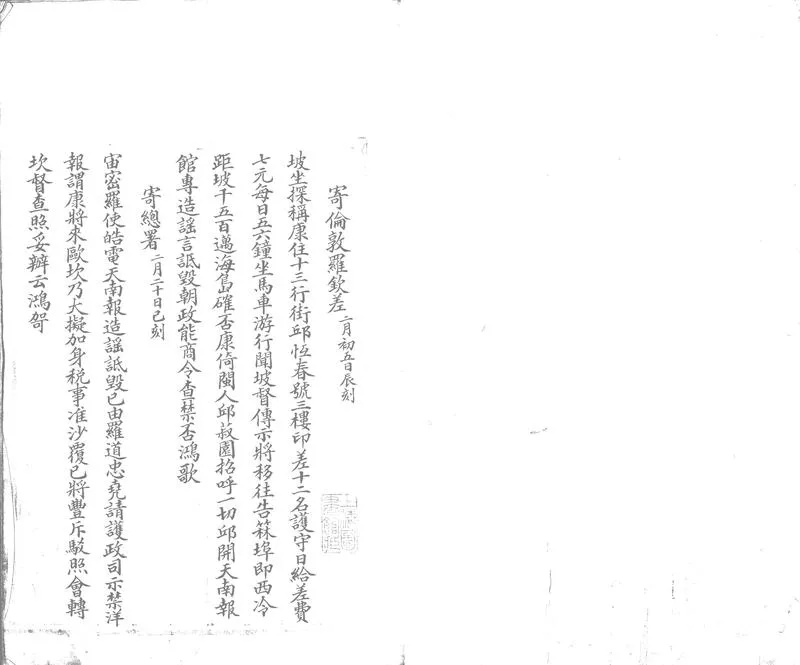 寄倫敦羅欽差 二月初五日辰刻
坡坐探稱康住十三行街邱恆春號三樓印差十二名護守日給差費
七元每日五六鐘坐馬車游行聞坡督傳示將移往告箖埠即西冷
距坡千五百邁海島確否康倚閩人邱菽園招呼一切邱開天南報
館專造謠言詆毀朝政能商令查禁否鴻歌
寄總署 二月二十日巳刻
宙密羅使皓電天南報造謠詆毀已由羅道忠堯請護政司示禁洋
報謂康將來歐坎乃大擬加身稅事准沙覆已將豐斥駁照會轉
坎督查照妥辦云鴻哿